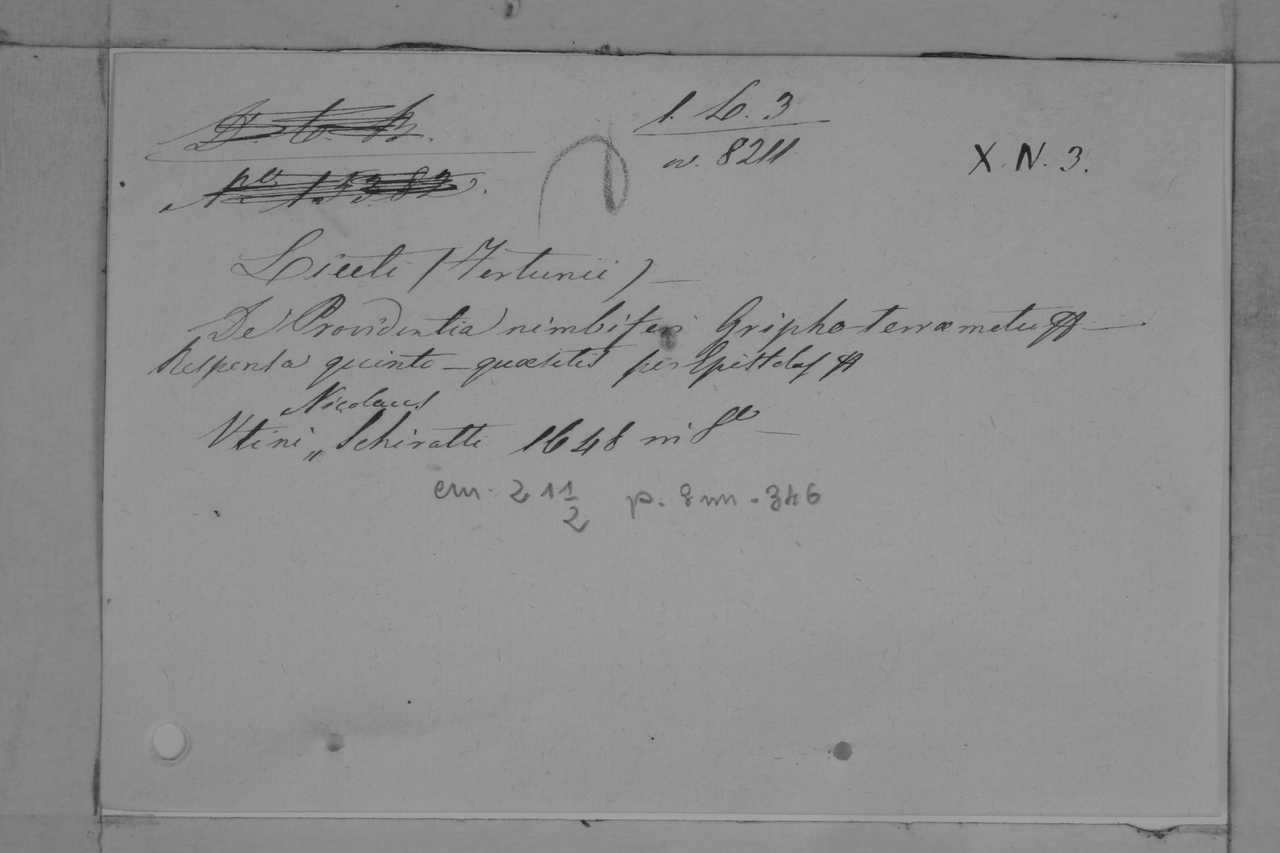 1. L. 3
n. 8211
X. N. 3.
Liceti (Fortunii) —
De Providentia nimbiferi Gripho terræmetu —
Responsa quinto – quæsitis per Epistolas
Nicolaus
Utini „ Schiratti 1648 in 8º —
cm. 21 1/2 p. 8nn - 346